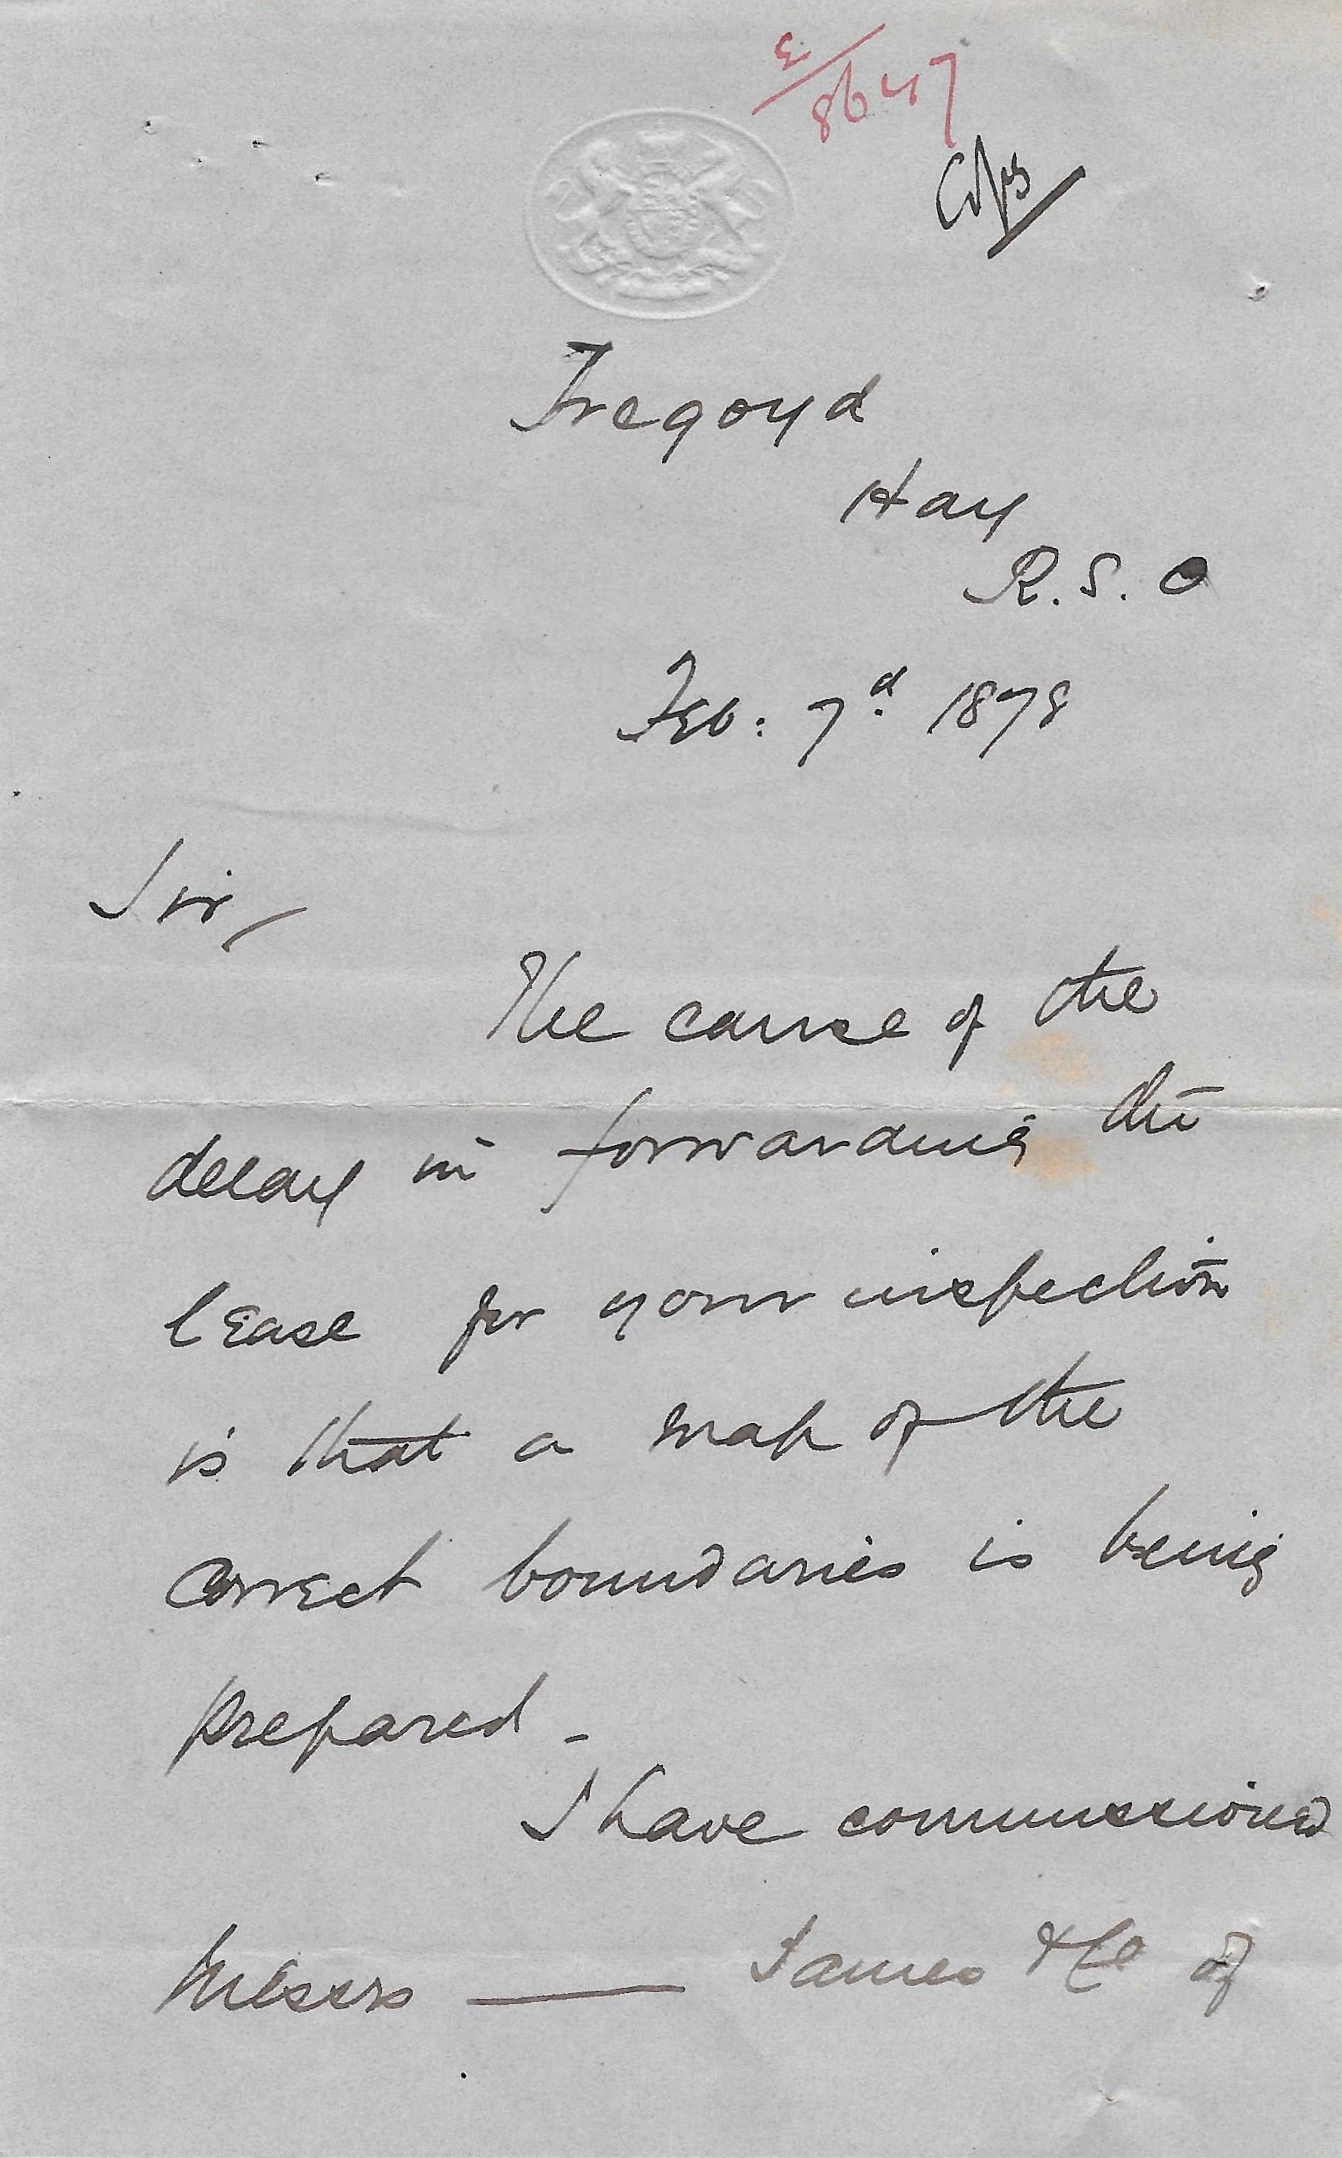 E/8647
Copy
Tregoyd
Hay
R.S.O
Feb: 7d. 1878
Sir,
The cause of the
delay in forwarding the
lease for your inspection
is that a map of the
correct boundaries is being
prepared –
I have commissioned
Messrs —— James & Co of